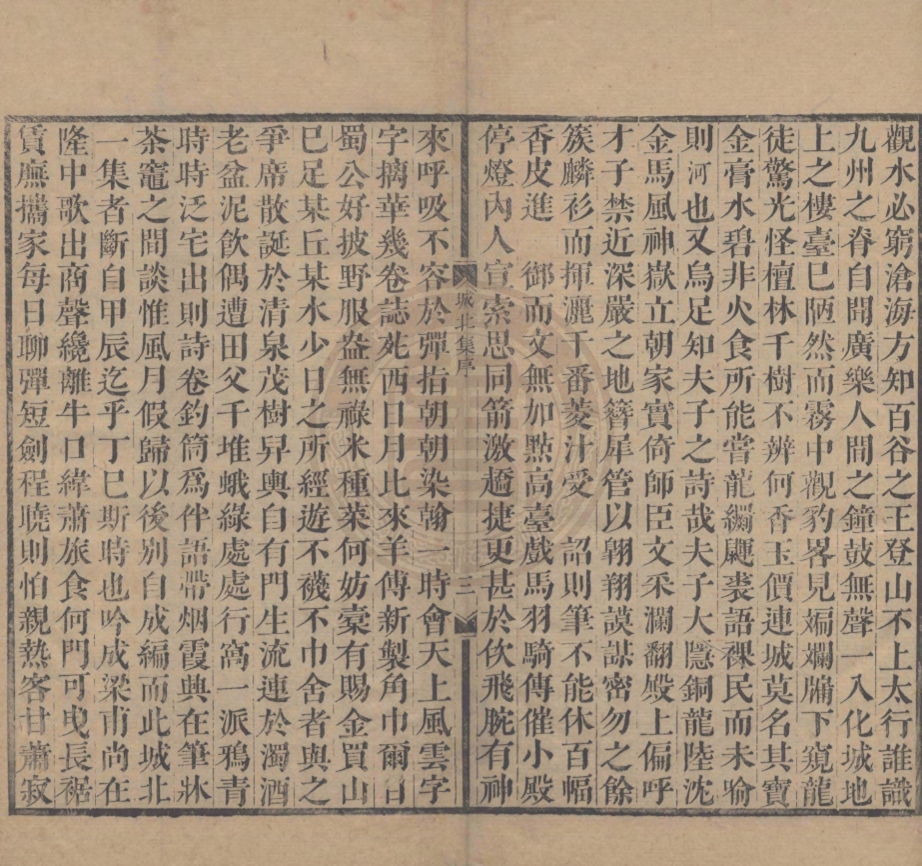 觀水必窮滄海方知百谷之王登山不上太行誰識
九州之脊自聞廣樂人間之鐘鼓無聲一入化城地
上之樓臺巳陋然而霧中觀豹畧見斒斕牖下窺龍
徒驚光怪檀林千樹不辨何香玉價連城莫名其寶
金膏水碧非火食所能嘗龍編颾裘語裸民而未喻
則河也又烏足知夫子之詩哉夫子大隱銅龍陸沈
金馬風神嶽立朝家實倚師臣文采瀾翻殿上偏呼
才子禁近深嚴之地簪犀管以翱翔謨謀密勿之餘
簇麟衫而揮灑千番菱汁受 詔則筆不能休百幅
香皮進 御而文無加點高臺戲馬羽騎傳催小殿
停燈內人宣索思同箭激趫捷更甚於佽飛腕有神
城北集序 三
來呼吸不容於彈指朝朝染翰一時會天上風雲字
字摛華幾卷誌苑西日月比來羊傅新製角巾爾日
蜀公好披野服盎無祿米種菜何妨槖有賜金買山
巳足某丘某水少日之所經遊不襪不巾舍者與之
爭席散誕於清泉茂樹舁輿自有門生流連於濁酒
老盆泥飲偶遭田父千堆蛾綠處處行窩一派鴉青
時時泛宅出則詩卷釣筒爲伴語帶烟霞興在筆牀
茶竈之間談惟風月假歸以後別自成編而此城北
一集者斷自甲辰迄乎丁巳斯時也吟成梁甫尚在
隆中歌出商聲纔離牛口緯蕭旅食何門可曳長裾
賃廡攜家每日聊彈短劍程曉則怕親熱客甘蕭寂